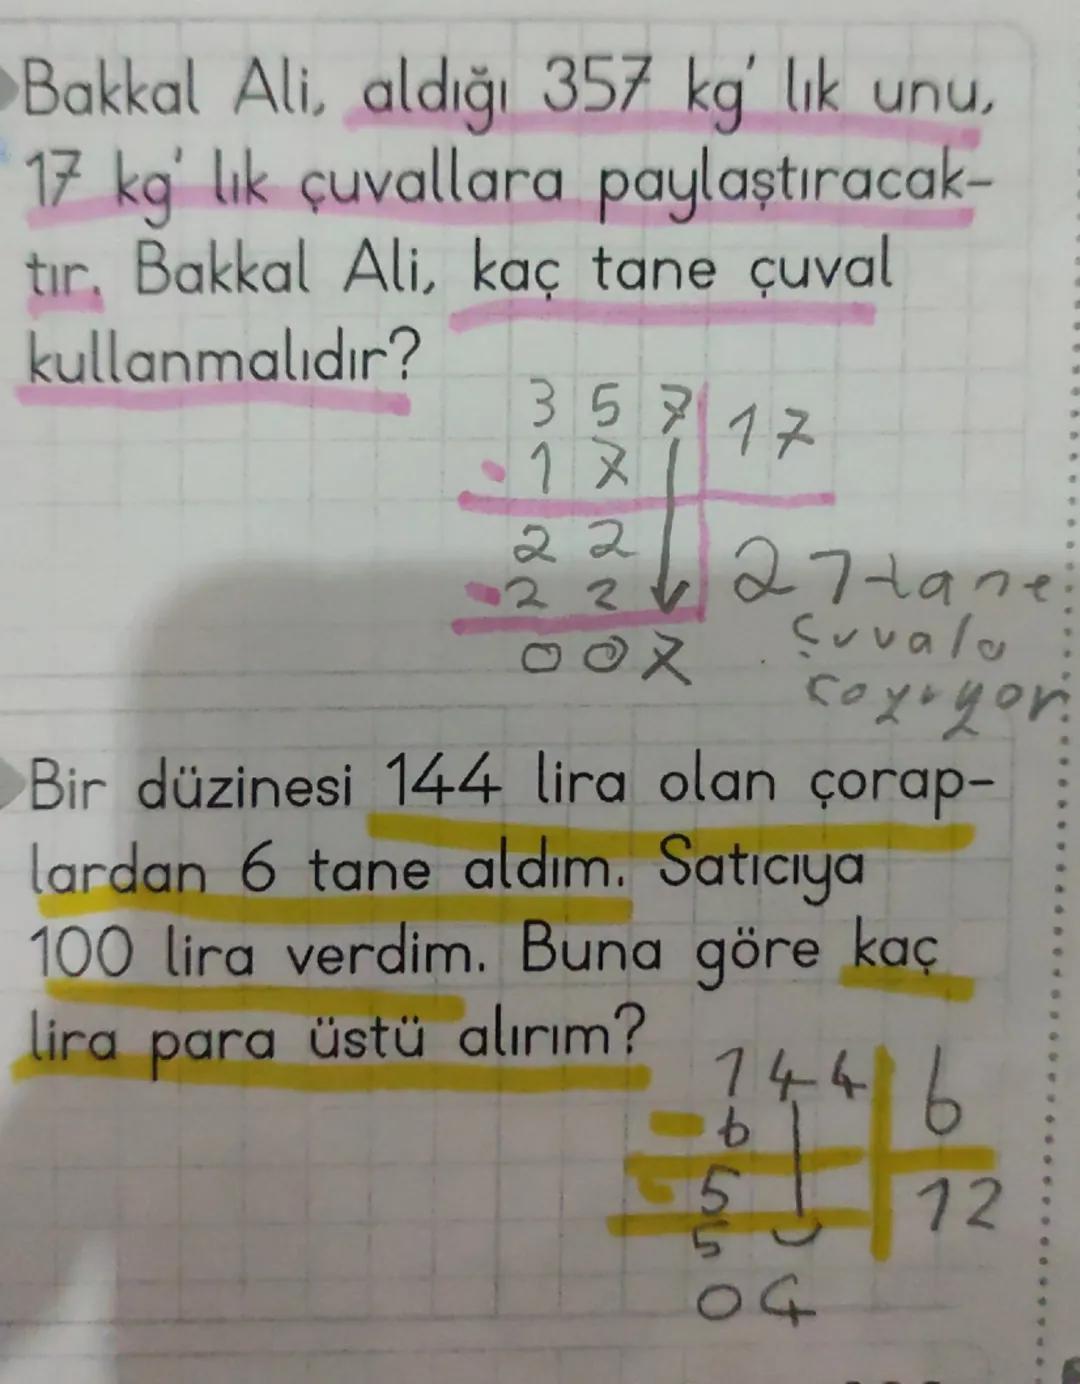 Bakkal Ali, aldığı 357 kg' lık unu,
17 kg' lık çuvallara paylaştıracak-
tır. Bakkal Ali, kaç tane çuval
kullanmalıdır?
3 5 7 17
- 1 7
2 2
- 2 2
0 0 7
27 tane
çuvala
koyuyor
Bir düzinesi 144 lira olan çorap-
lardan 6 tane aldım. Satıcıya
100 lira verdim. Buna göre kaç
lira para üstü alırım?
144 6
- 6 12
- 5
5
04